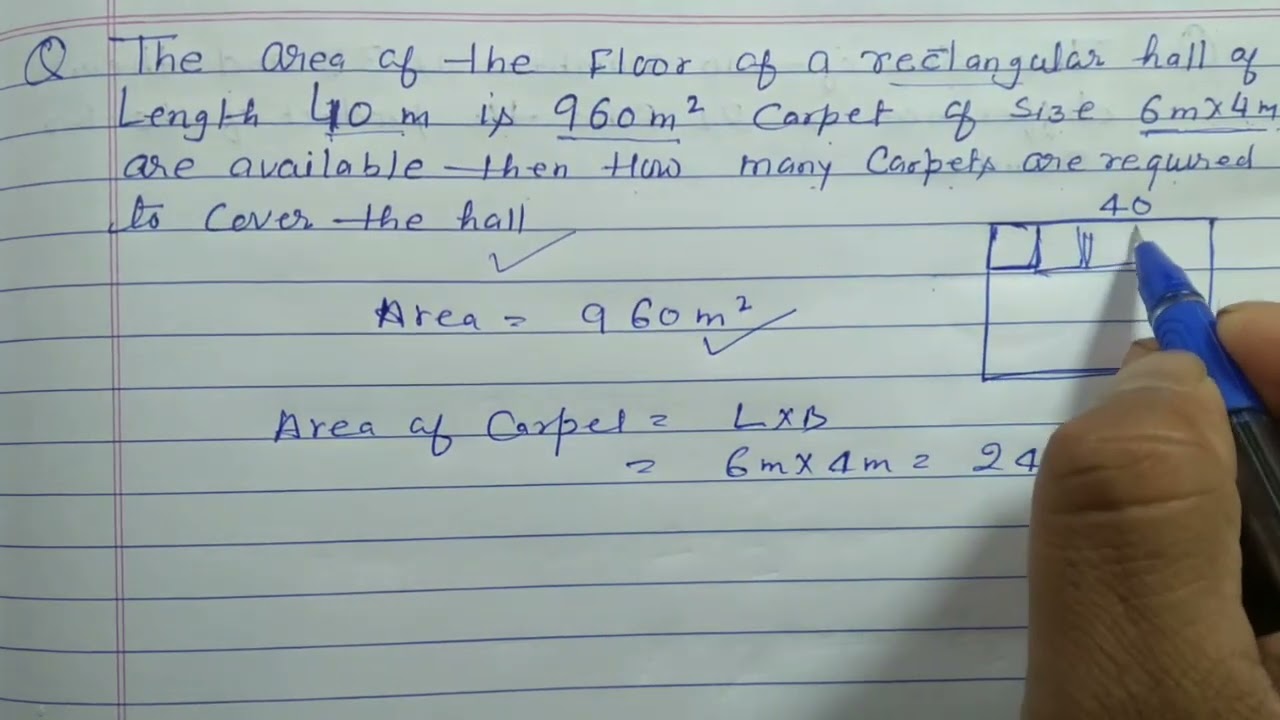 Q The area of the Floor of a rectangular hall of
Length 40 m is 960m² Carpet of Size 6m×4m
are available then How many Carpets are required
to cover the hall
40
Area = 960m²
Area of Carpet = L×B
= 6m×4m = 24